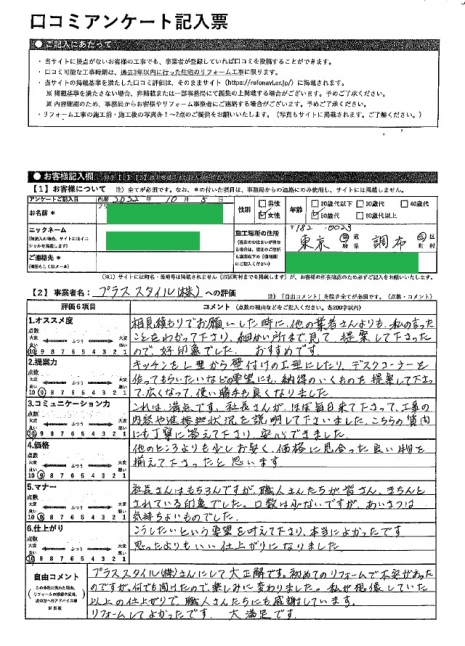 口コミアンケート記入票
● ご記入にあたって
・当サイトに接点がないお客様の工事でも、事業者が登録していれば口コミを投稿することができます。
・口コミ可能な工事時期は、過去3年以内に行った住宅のリフォーム工事に限ります。
・当サイトの掲載基準を満たした口コミ評価は、そのままサイト
に掲載されます。
・リフォーム工事の施工前・施工後の写真き1～2点のご提供をお願いいたします。（写真もサイトに掲載されます。ご了承ください。）
● お客様記入欄
【1】お客様について
アンケートご記入日 西暦 2022年10月5日
お名前 *
性別 男性 女性
年齢 30歳代以下 30歳代 40歳代
50歳代 60歳代以上
ニックネーム
施工場所の住所
〒182-0023
東京 都 調布 市
ご連絡先 *
【2】事業者名：プラススタイル(株) への評価
評価6項目
コメント
1.オススメ度
相見積もりでお願いした時に、他の業者さんよりも、私の言った
ことをわかって下さり、細かい所まで見て提案して下さった
ので、好印象でした。 おすすめです。
2.提案力
キッチンをL型から壁付けのI型にしたり、デスクコーナーを
作ってもらいたいなどの要望にも、納得のいくものを提案して下さっ
て広くなって、使い勝手も良くなりました
3.コミュニケーション力
これは満点です。社長さんが、ほぼ毎日来て下さって、工事の
内容や進捗状況を説明して下さいました。こちらの質問
にも丁寧に答えて下さり、安心できました
4.価格
他のところよりも少しお安く、価格に見合った良い物を
揃えて下さったと思います
5.マナー
社長さんはもちろんですが、職人さんたちが皆さん、きちんと
されている印象でした。口数は少ないですが、あいさつは
気持ちよいものでした。
6.仕上がり
こうしたいという要望を叶えて下さり、本当によかったです
思ったよりもいい仕上がりになりました
自由コメント
プラススタイル(株)さんにして大正解です。初めてのリフォームで不安があった
のですが、何でも聞けたので、楽しみに変わりました。私が想像していた
以上の仕上がりで、職人さんたちにも感謝しています。
リフォームしてよかったです。 大満足です。